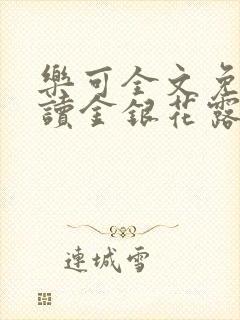 樂可全文免
讀金銀花露
連城雪